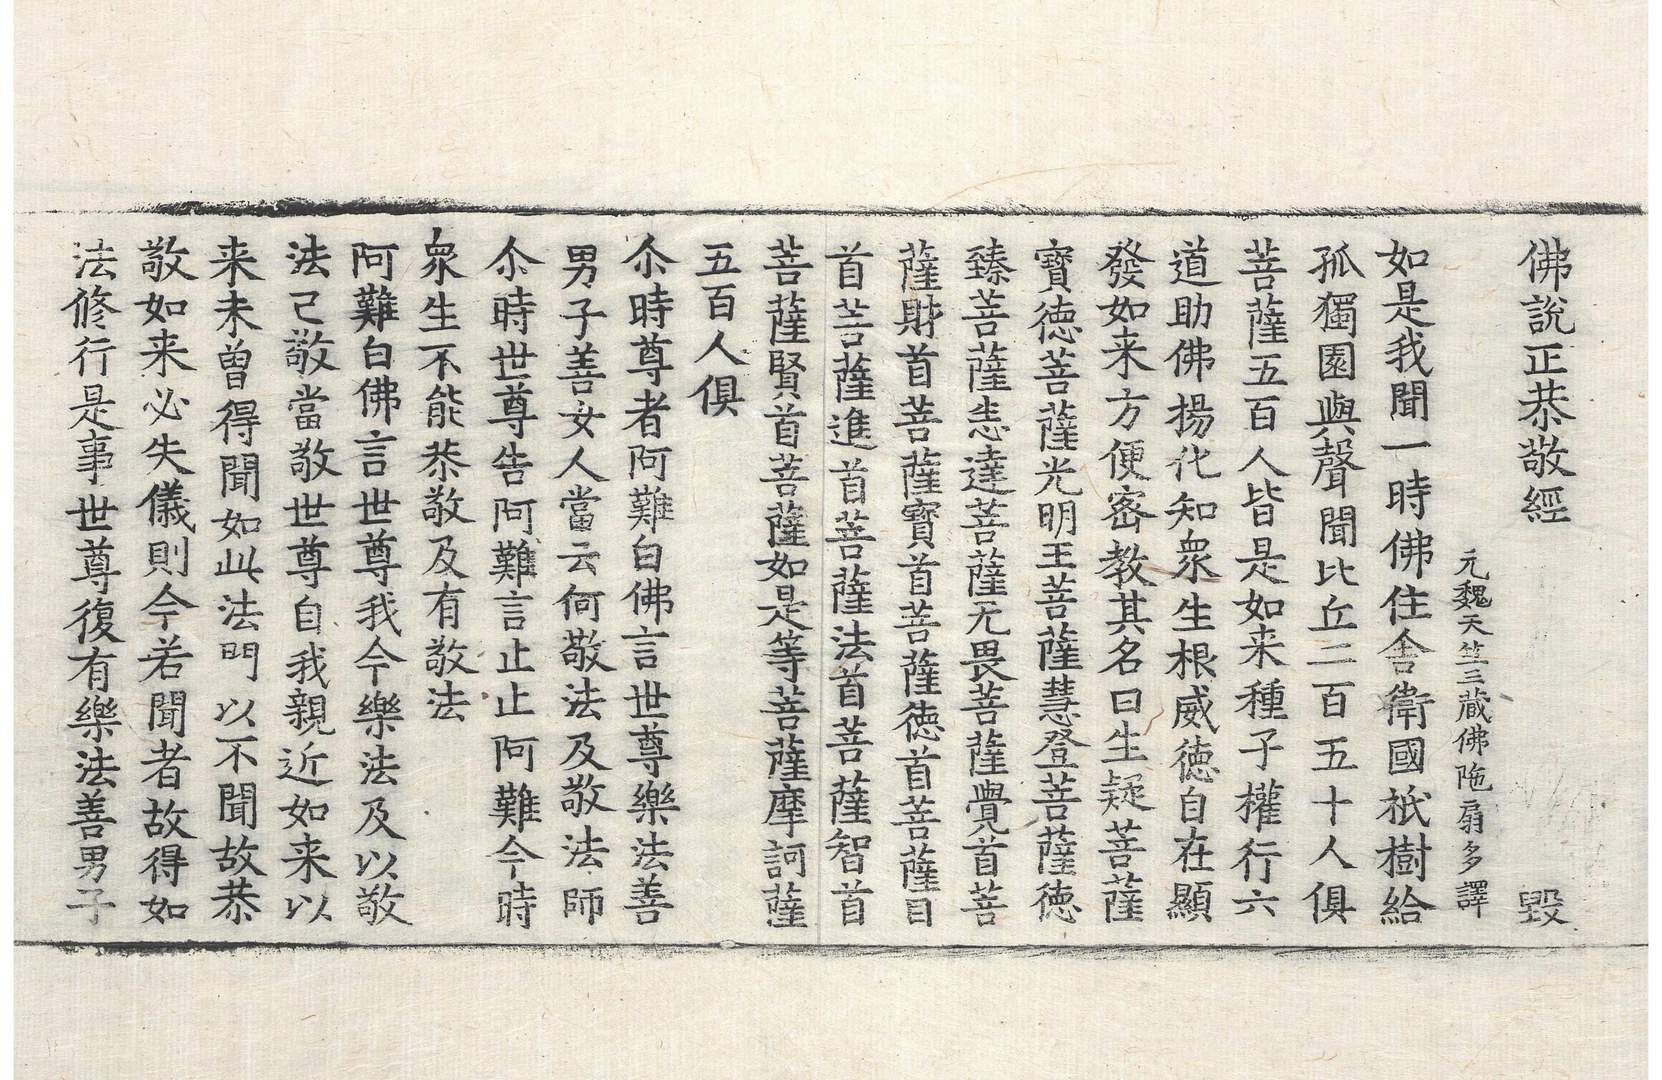 佛說正恭敬經 毀
元魏天竺三藏佛陁扇多譯
如是我聞一時佛住舍衛國祇樹給
孤獨園與聲聞比丘二百五十人俱
菩薩五百人皆是如来種子權行六
道助佛揚化知衆生根威德自在顯
發如来方便密教其名曰生疑菩薩
寶德菩薩光明王菩薩慧登菩薩德
臻菩薩恚達菩薩无畏菩薩覺首菩
薩財首菩薩寶首菩薩德首菩薩目
首菩薩進首菩薩法首菩薩智首
菩薩賢首菩薩如是等菩薩摩訶薩
五百人俱
尒時尊者阿難白佛言世尊樂法善
男子善女人當云何敬法及敬法師
尒時世尊告阿難言止止阿難今時
衆生不能恭敬及有敬法
阿難白佛言世尊我今樂法及以敬
法己敬當敬世尊自我親近如来以
来未曾得聞如此法門以不聞故恭
敬如来必失儀則今若聞者故得如
法修行是事世尊復有樂法善男子